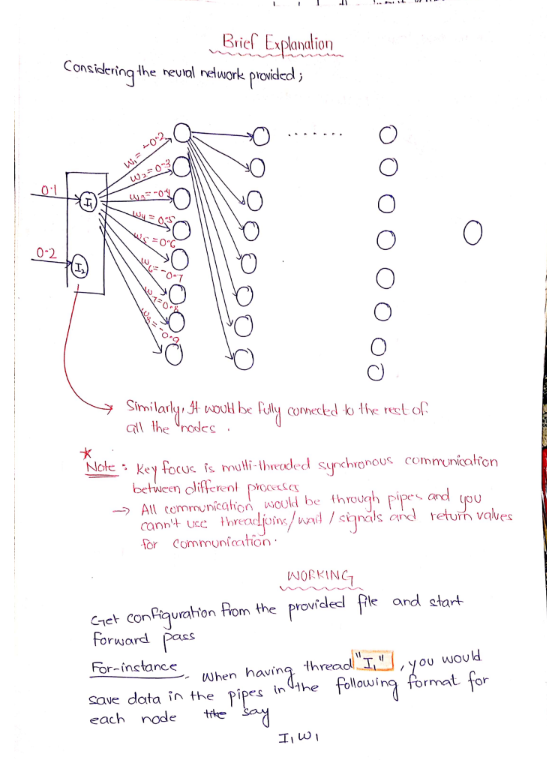 Brief Explanation
Considering the neural network provided;
W₁ = -0.2
W₂ = 0.3
W₃ = -0.4
W₄ = 0.5
W₅ = 0.6
W₆ = -0.7
W₇ = 0.8
W₈ = -0.9
0.1
I₁
0.2
I₂
Similarly, It would be fully connected to the rest of
all the nodes.
*
Note : Key focus is multi-threaded synchronous communication
between different processes
→ All communication would be through pipes and you
cann't use thread joins/wait / signals and return values
for communication.
WORKING
Get configuration from the provided file and start
forward pass
For-instance, When having thread "I₁", you would
save data in the pipes in the following format for
each node say
I₁W₁